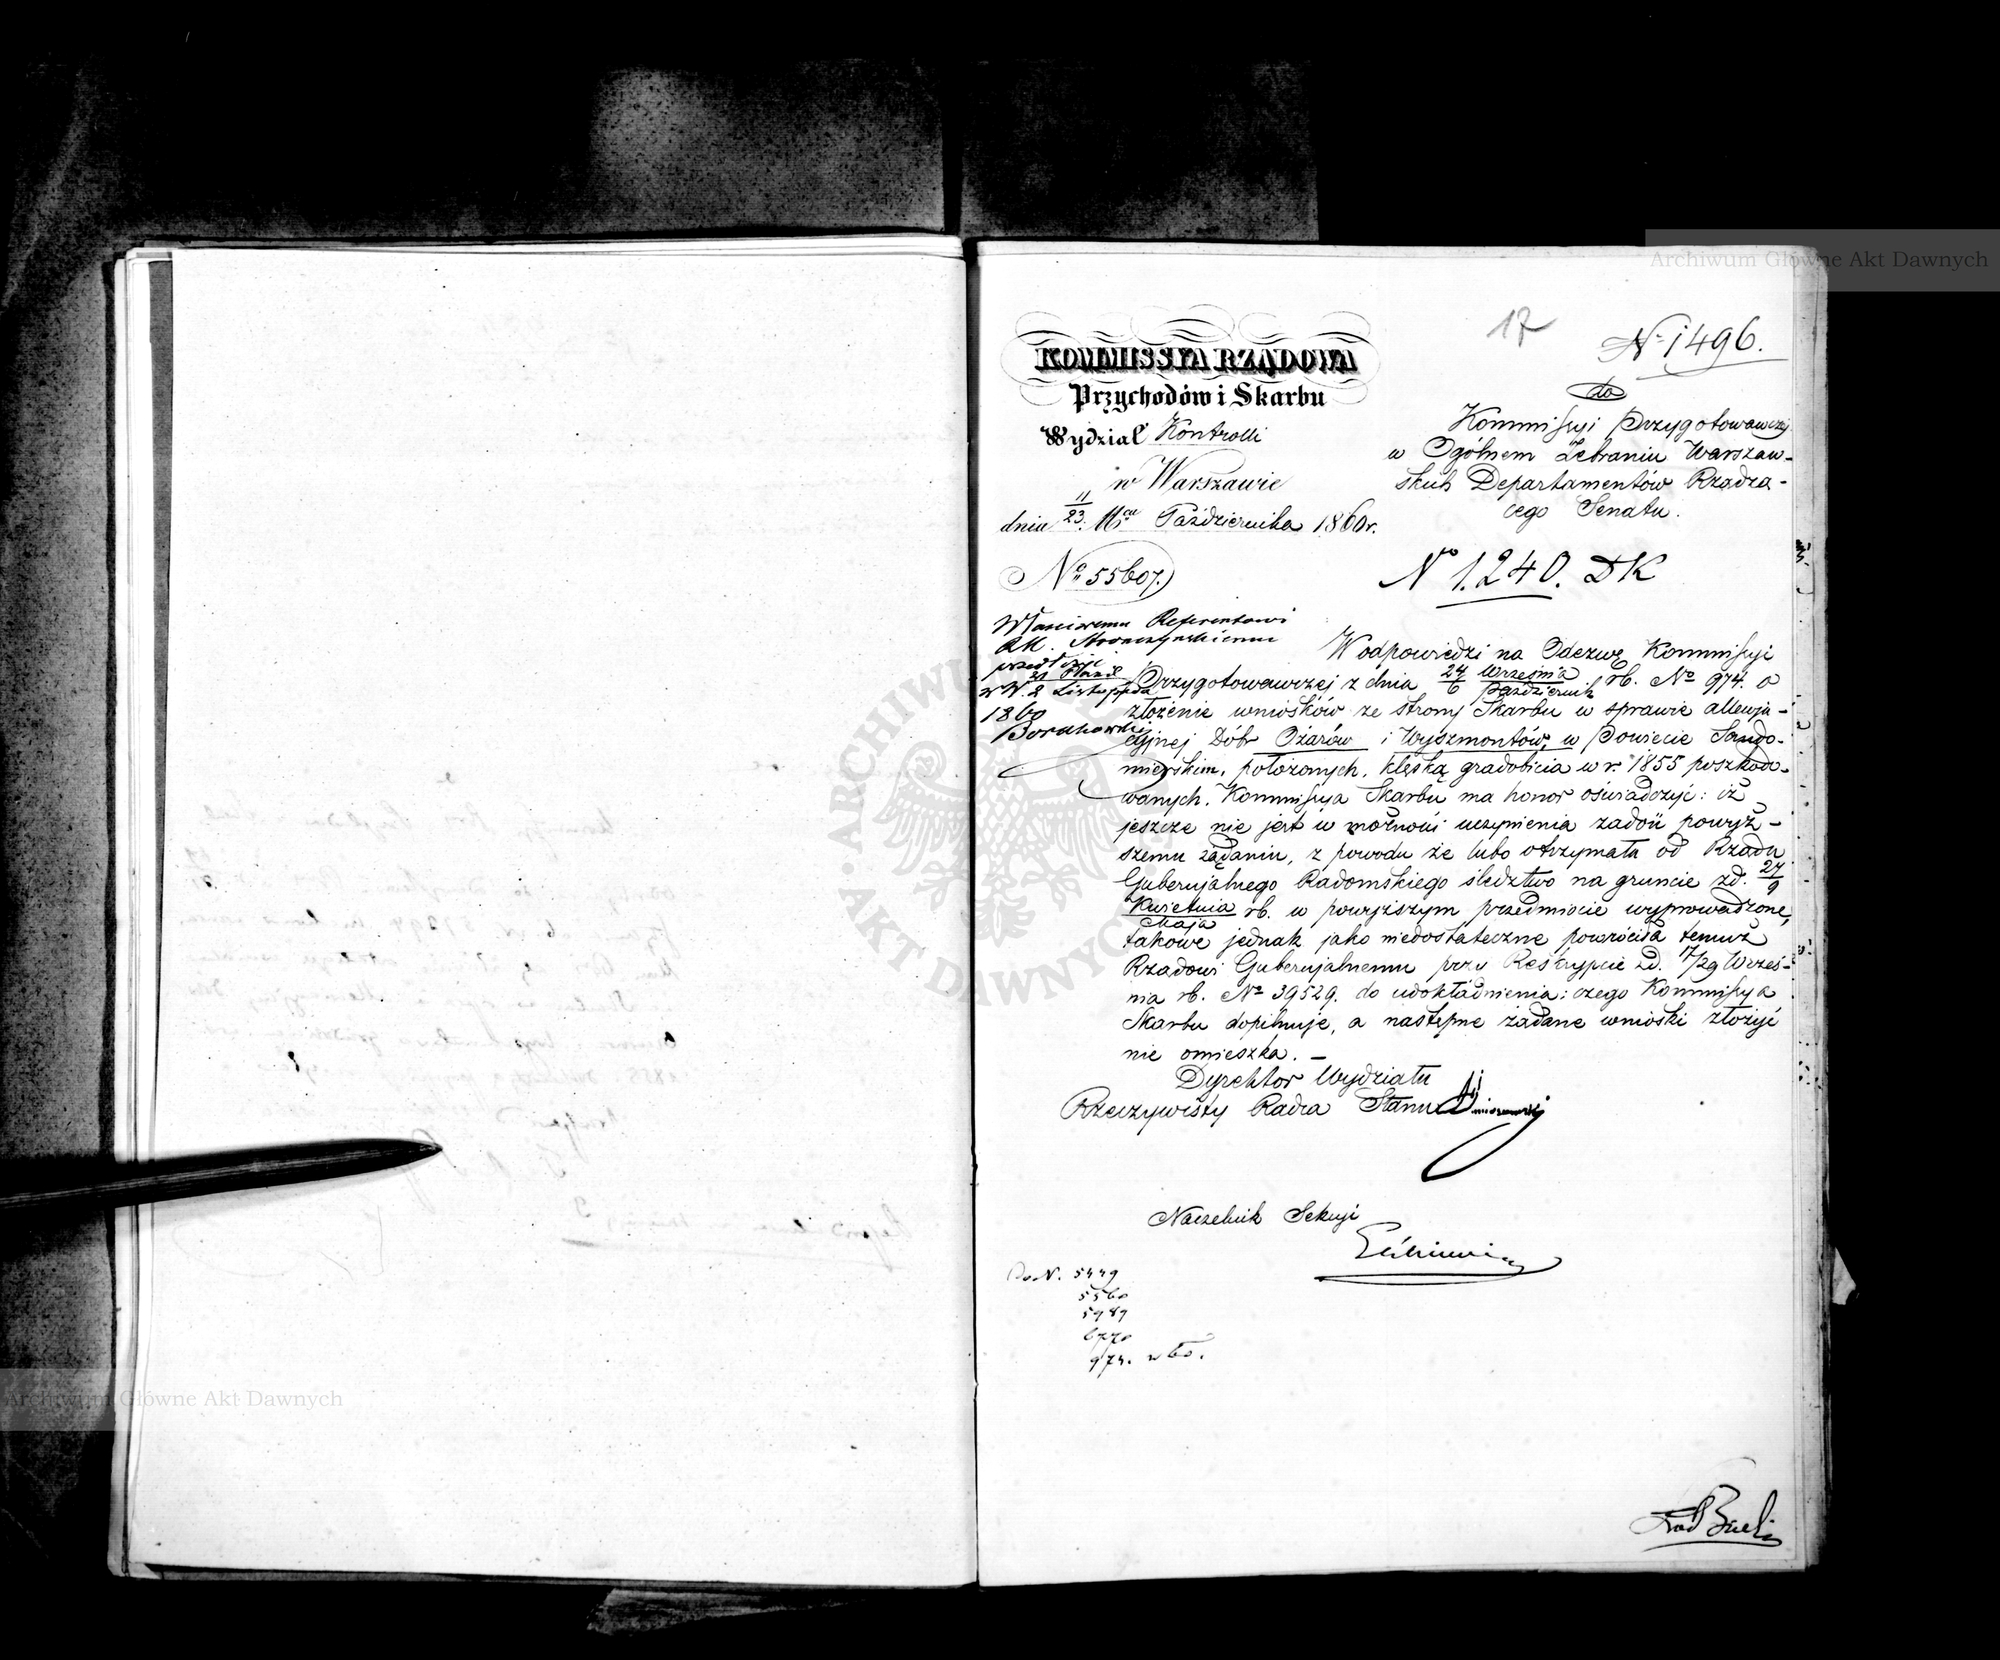 Archiwum Główne Akt Dawnych
17
No 1496.
KOMMISSYA RZĄDOWA
Przychodów i Skarbu
Wydział Kontrolli
w Warszawie
dnia 11/23 Mca Października 1860 r.
No 55607.
do
Kommissyi Przygotowawczej
w Ogólnem Zebraniu Warszaw-
skich Departamentów Rządzą-
cego Senatu.
No 1,240. DK
Właściwemu Referentowi
przedłożyć
W. 2 Listopada
1860
W odpowiedzi na Odezwę Kommissyi
Przygotowawczej z dnia 24/6 Września/Październik rb. No 974. o
złożenie wniosków ze strony Skarbu w sprawie allewja-
cyjnej Dóbr Ożarów i Wyszmontów, w Powiecie Sando-
mierskim, położonych, klęską gradobicia w r. 1855 poszkodo-
wanych, Kommissya Skarbu ma honor oświadczyć: iż
jeszcze nie jest w możności uczynienia zadość powyż-
szemu żądaniu, z powodu że lubo otrzymała od Rządu
Gubernjalnego Radomskiego śledztwo na gruncie zd. 27/9
Kwietnia/Maja rb. w powyższym przedmiocie wyprowadzone,
takowe jednak jako niedostateczne powróciła temuż
Rządowi Gubernjalnemu przy Reskrypcie zd. 17/29 Wrześ-
nia rb. No 39529. do udokładnienia; czego Kommissya
Skarbu dopilnuje, a następne żądane wnioski złożyć
nie omieszka. —
Dyrektor Wydziału
Rzeczywisty Radca Stanu
Naczelnik Sekcyi
Do N. 5449
5560
5989
6770
974. w 60.
ARCHIWUM GŁÓWNE AKT DAWNYCH
Archiwum Główne Akt Dawnych